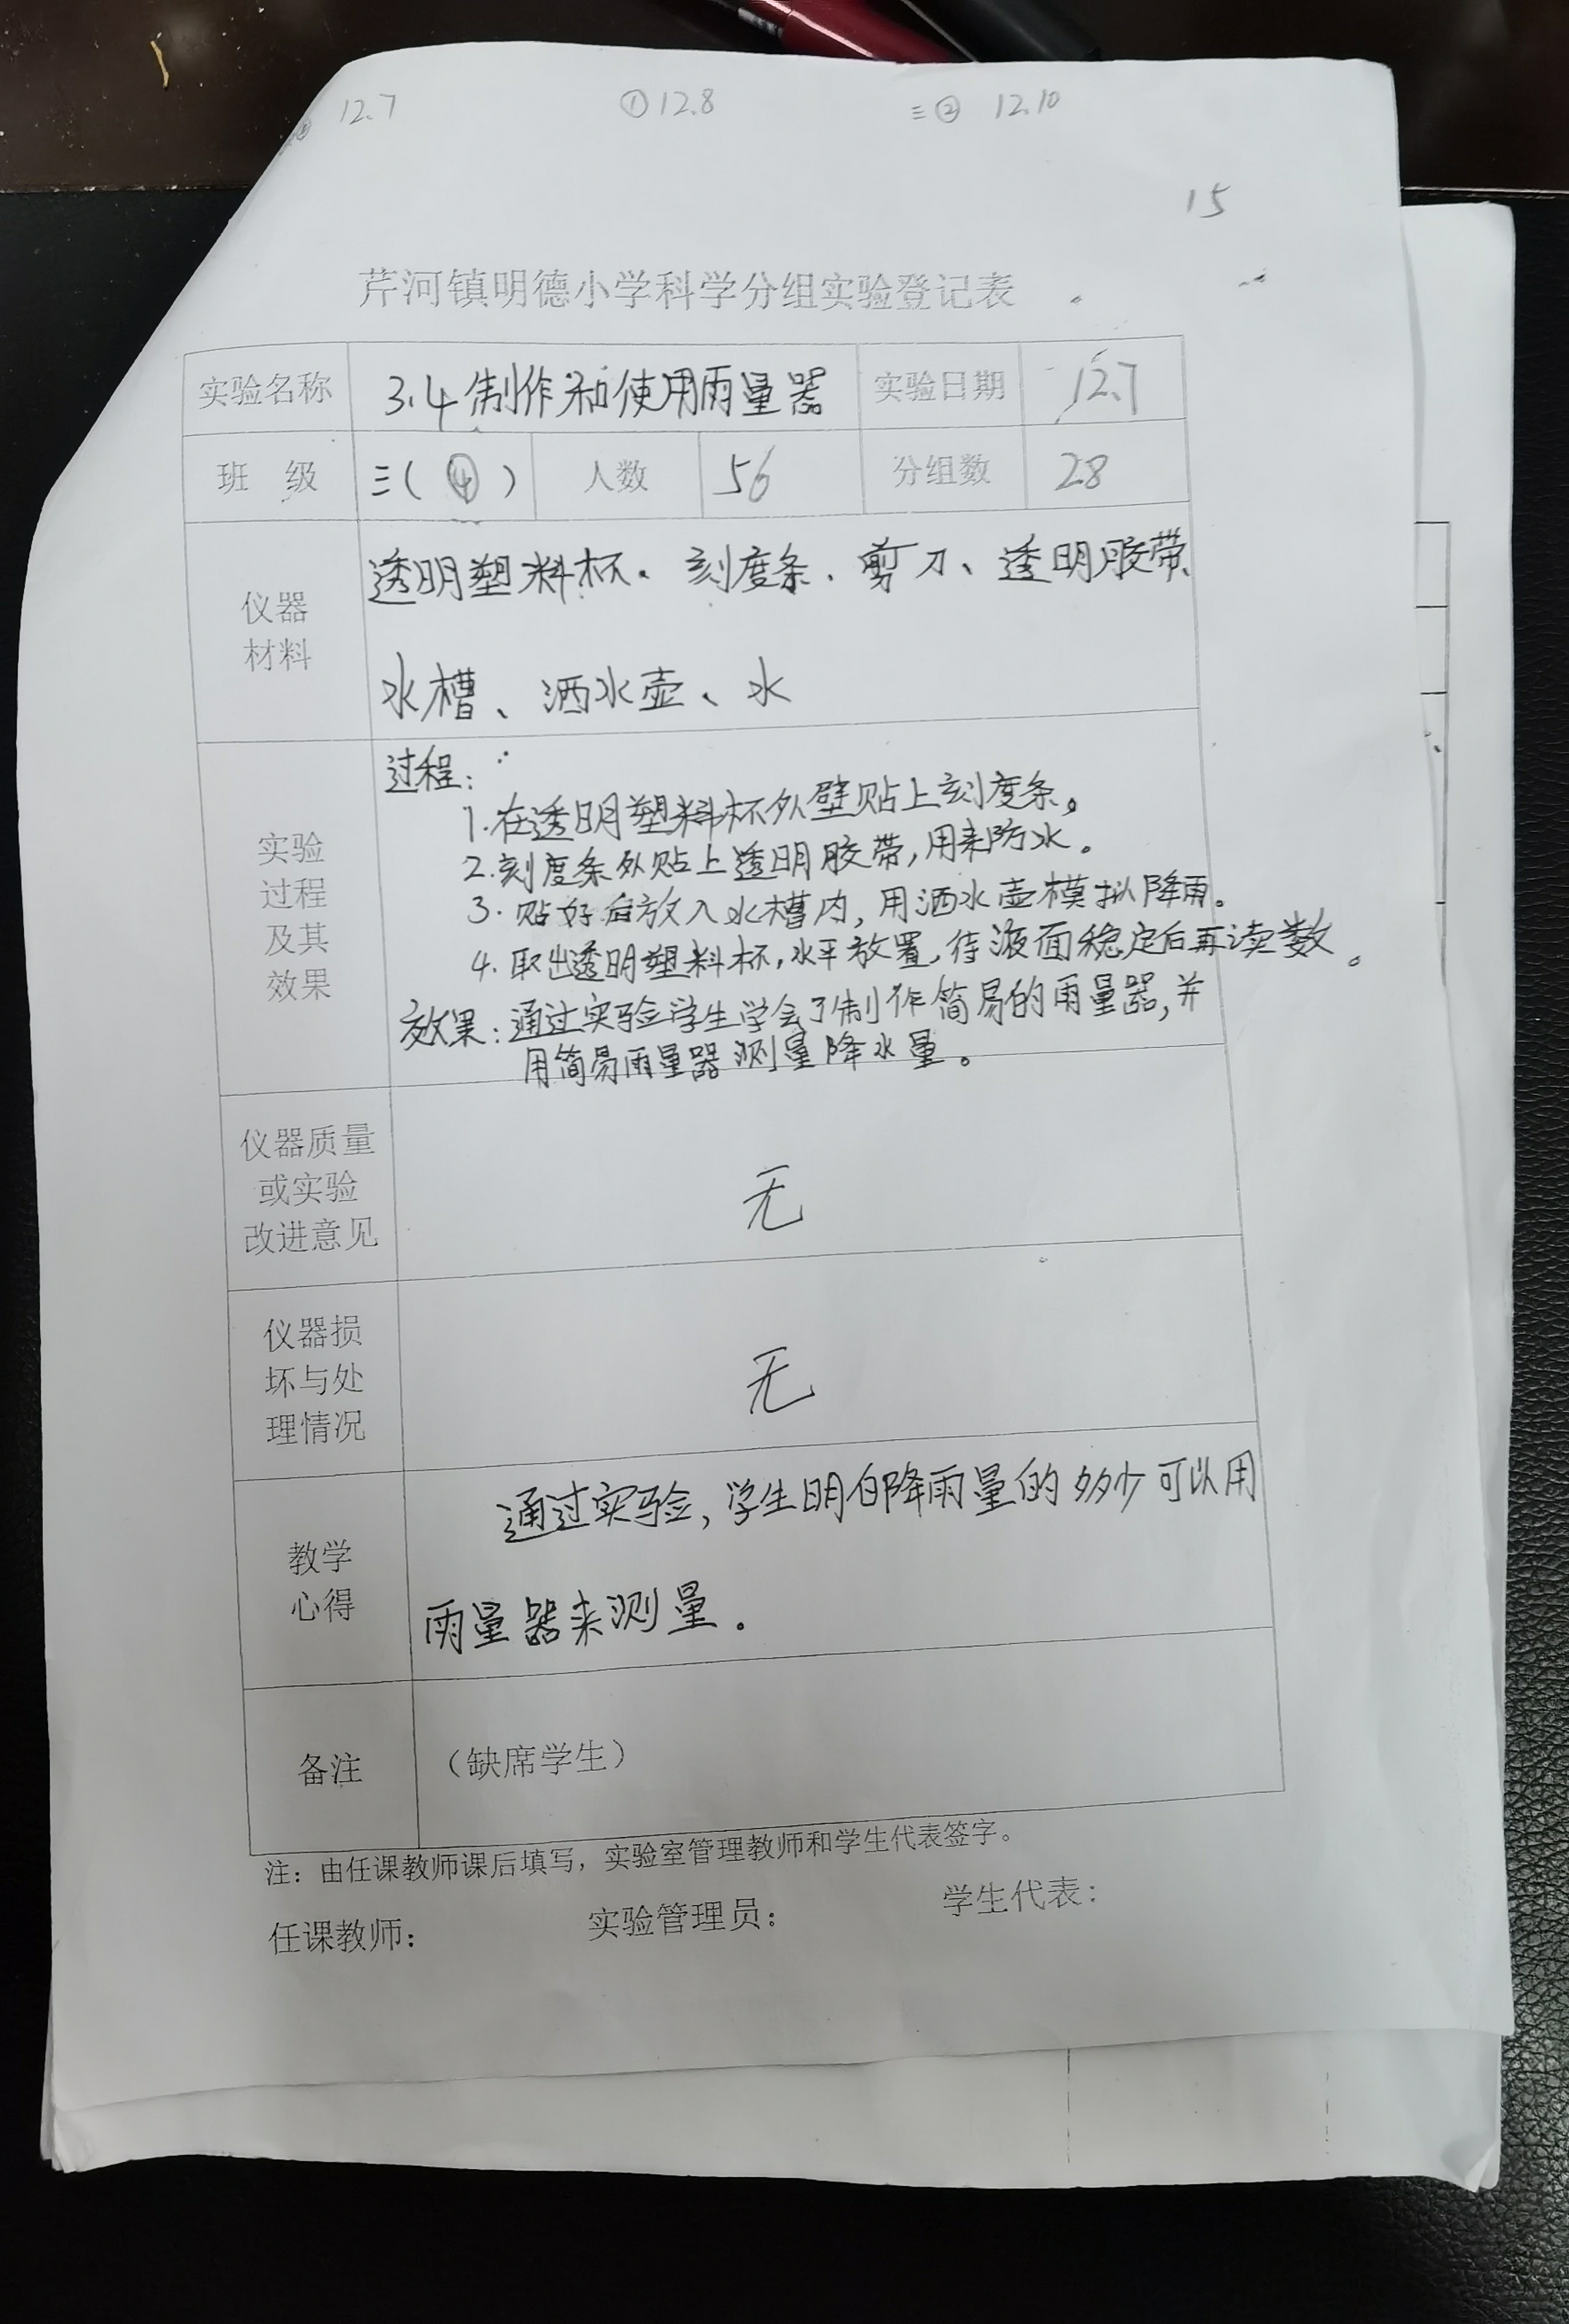 12.7 ①12.8 三② 12.10
15
芹河镇明德小学科学分组实验登记表
实验名称 3.4制作和使用雨量器 实验日期 12.7
班 级 三(④) 人数 56 分组数 28
仪器
材料
透明塑料杯、刻度条、剪刀、透明胶带、
水槽、洒水壶、水
实验
过程
及其
效果
过程:
1.在透明塑料杯外壁贴上刻度条。
2.刻度条外贴上透明胶带,用来防水。
3.贴好后放入水槽内,用洒水壶模拟降雨。
4.取出透明塑料杯,水平放置,待液面稳定后再读数。
效果:通过实验学生学会了制作简易的雨量器,并
用简易雨量器测量降水量。
仪器质量
或实验
改进意见
无
仪器损
坏与处
理情况
无
教学
心得
通过实验,学生明白降雨量的多少可以用
雨量器来测量。
备注 (缺席学生)
注:由任课教师课后填写,实验室管理教师和学生代表签字。
任课教师: 实验管理员: 学生代表: